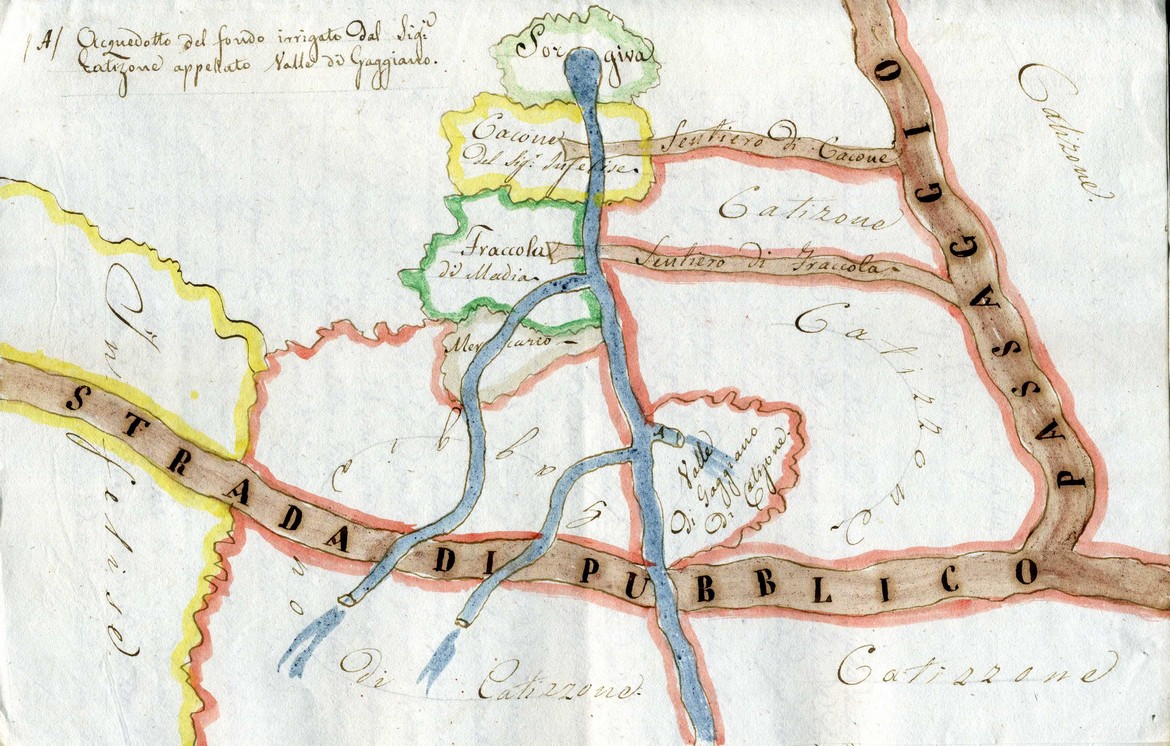 /A/ Acquedotto del fondo irrigato dal Sigr
Catizone appellato Valle di Gaggiano.
Sorgiva
Cacone
del Sigr Infelise.
Sentiero di Cacone
Catizone.
Catizone
Fraccola
di Madia
Sentiero di Fraccola
Catizone
PASSAGGIO
Infelise
Valle
di Gaggiano
di Catizone.
A
STRADA DI PUBBLICO
di Catizzone.
Catizzone